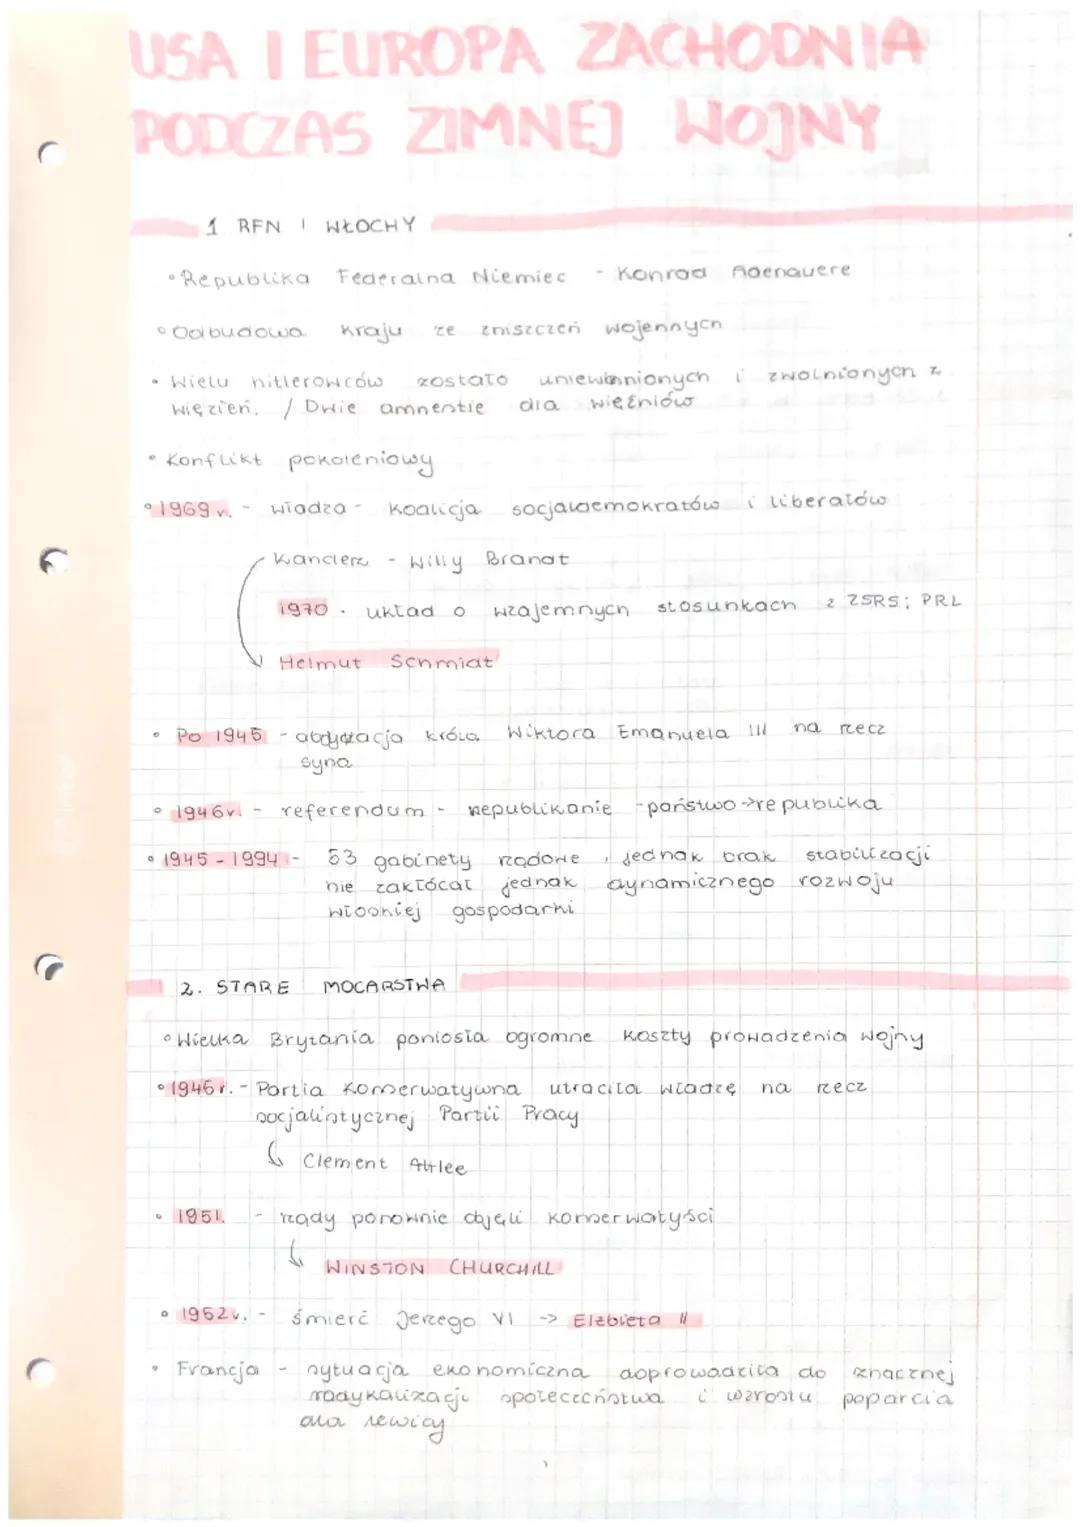 USA I EUROPA ZACHODNIA
PODCZAS ZIMNEJ WOJNY
1 RFN I WŁOCHY
• Republika Federalna Niemiec - Konrad Adenauere
• Odbudowa kraju ze zniszczeń wojennych
• Wielu hitlerowców zostało uniewinnionych i zwolnionych z
więzień. / Dwie amnestie dla więźniów
• Konflikt pokoleniowy
• 1969 r. - władza - koalicja socjaldemokratów i liberałów
Kanclerz - Willy Brandt
1970 - układ o wzajemnych stosunkach z ZSRS; PRL
Helmut Schmidt
• Po 1945 - abdykacja króla Wiktora Emanuela III na rzecz
syna
• 1946r. - referendum - republikanie - państwo → republika
• 1945 - 1994 - 53 gabinety rządowe, jednak brak stabilizacji
nie zakłócał jednak dynamicznego rozwoju
włoskiej gospodarki
2. STARE MOCARSTWA
• Wielka Brytania poniosła ogromne koszty prowadzenia wojny
• 1945r. - Partia Konserwatywna utraciła władzę na rzecz
socjalistycznej Partii Pracy
↳ Clement Attlee
• 1951. - rządy ponownie objęli konserwatyści
↳ WINSTON CHURCHILL
• 1952r. - śmierć Jerzego VI -> Elżbieta II
• Francja - sytuacja ekonomiczna doprowadziła do znacznej
radykalizacji społeczeństwa i wzrostu poparcia
dla lewicy